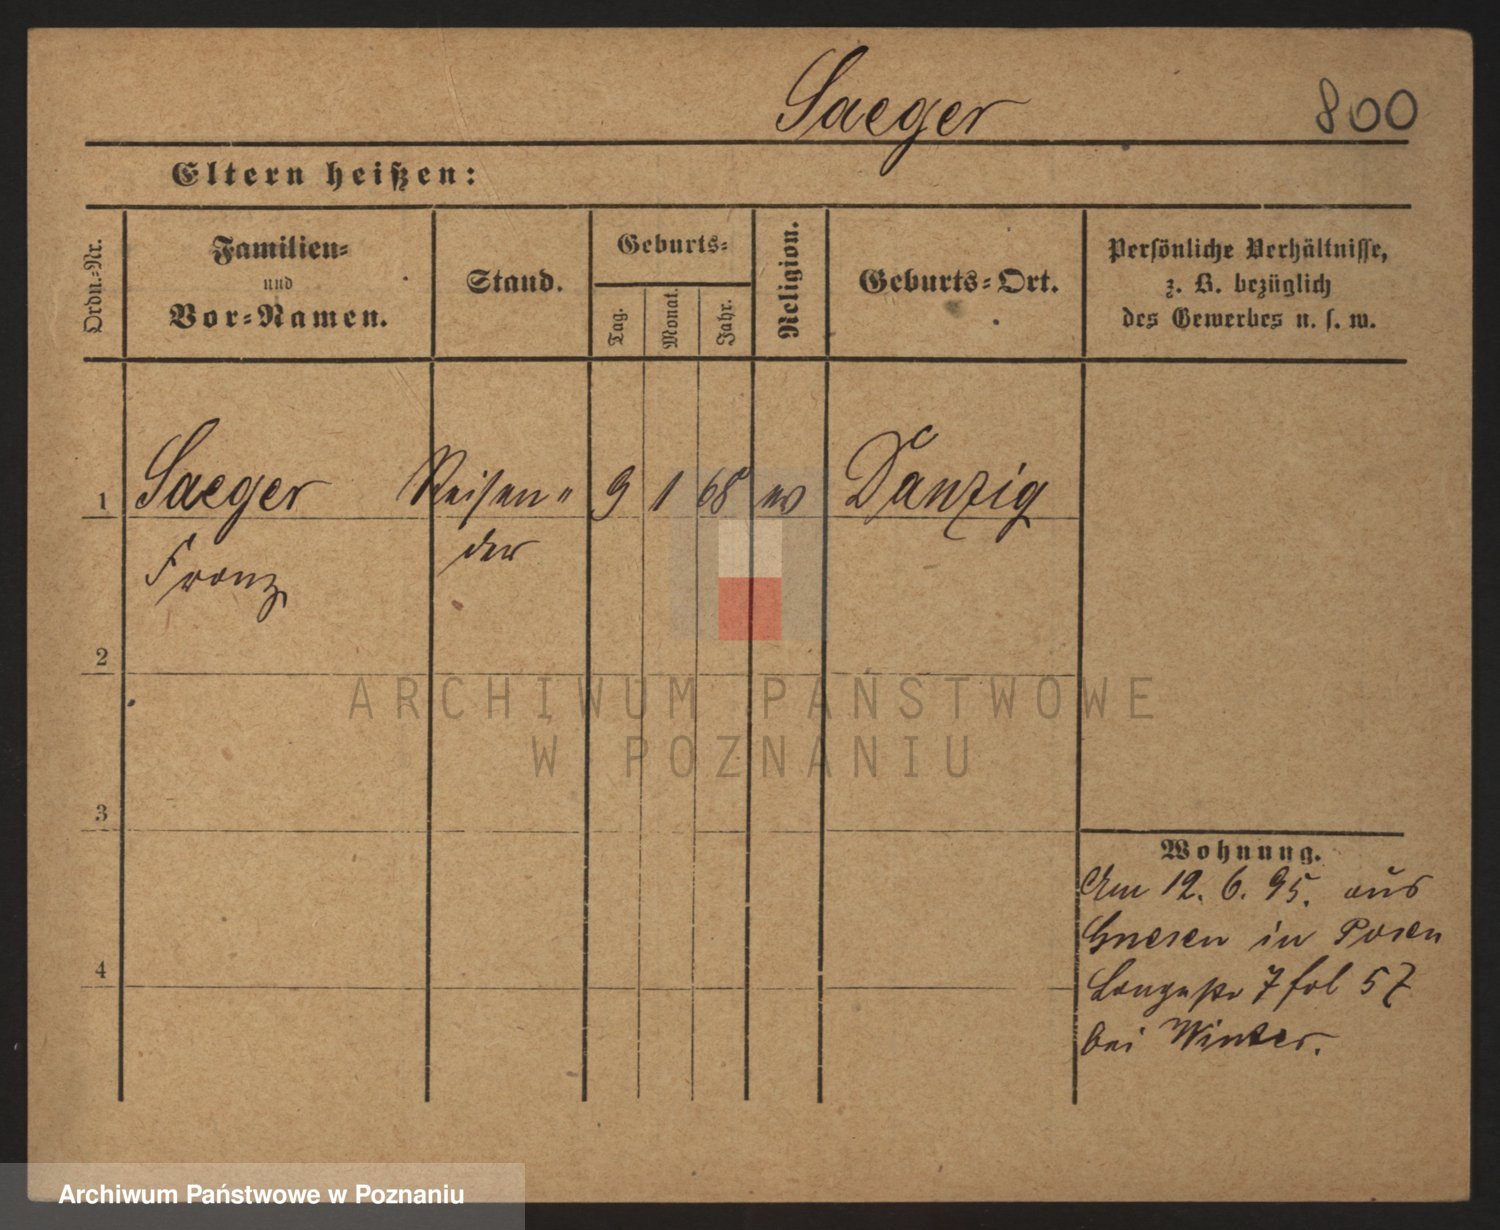 Saeger 800
Eltern heißen:
Ordn.-Nr.
Familien-
und
Vor-Namen.
Stand.
Geburts-
Tag.
Monat.
Jahr.
Religion.
Geburts-Ort.
Persönliche Verhältnisse,
z. B. bezüglich
des Gewerbes u. s. w.
1 Saeger Reisen" 9 1 68 ev Danzig
Franz der
2
3
4
Wohnung.
Am 12. 6. 95. aus
Gnesen in Posen
7 fol 57
bei Winter.
ARCHIWUM PAŃSTWOWE
W POZNANIU
Archiwum Państwowe w Poznaniu